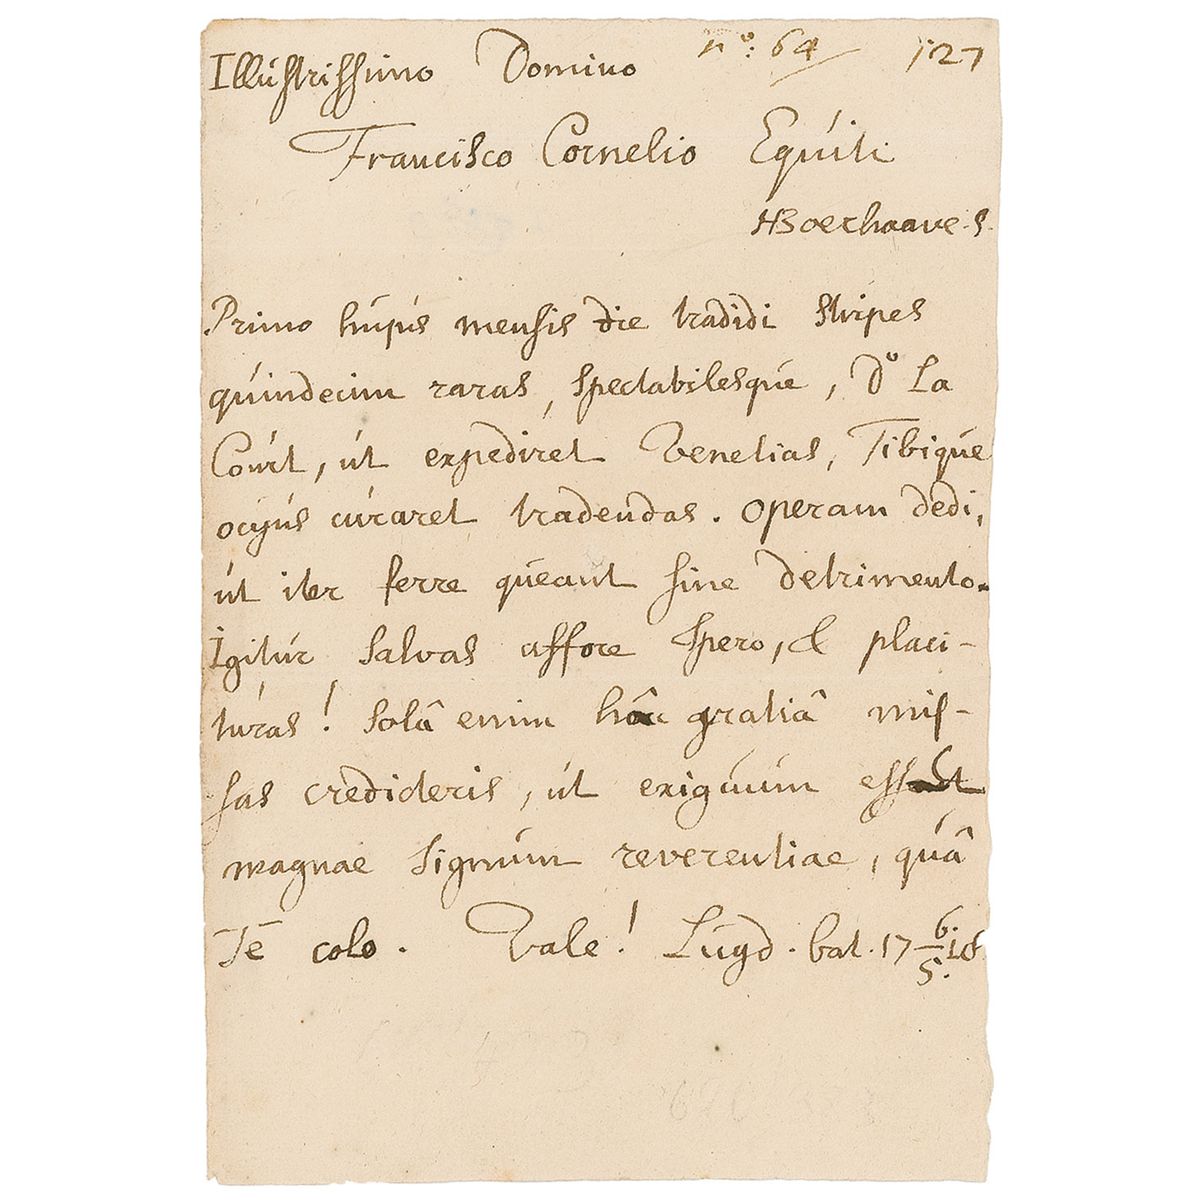 Illustrissimo Domino nº: 64 127
Francisco Cornelio Equiti
HBoerhaave. S.
Primo hujus mensis die tradidi stirpes
quindecim raras, spectabilesque, Dº La
Court, ut expediret Venetias, Tibique
ocyus curaret tradendas. operam dedi,
ut iter ferre queant sine detrimento.
Igitur salvas affore spero, & placi-
turas! solâ enim hac gratiâ mis-
sas credideris, ut exiguum esset
magnae signum reverentiae, quâ
Te colo. Vale! Lugd. bat. 17 6/5 18